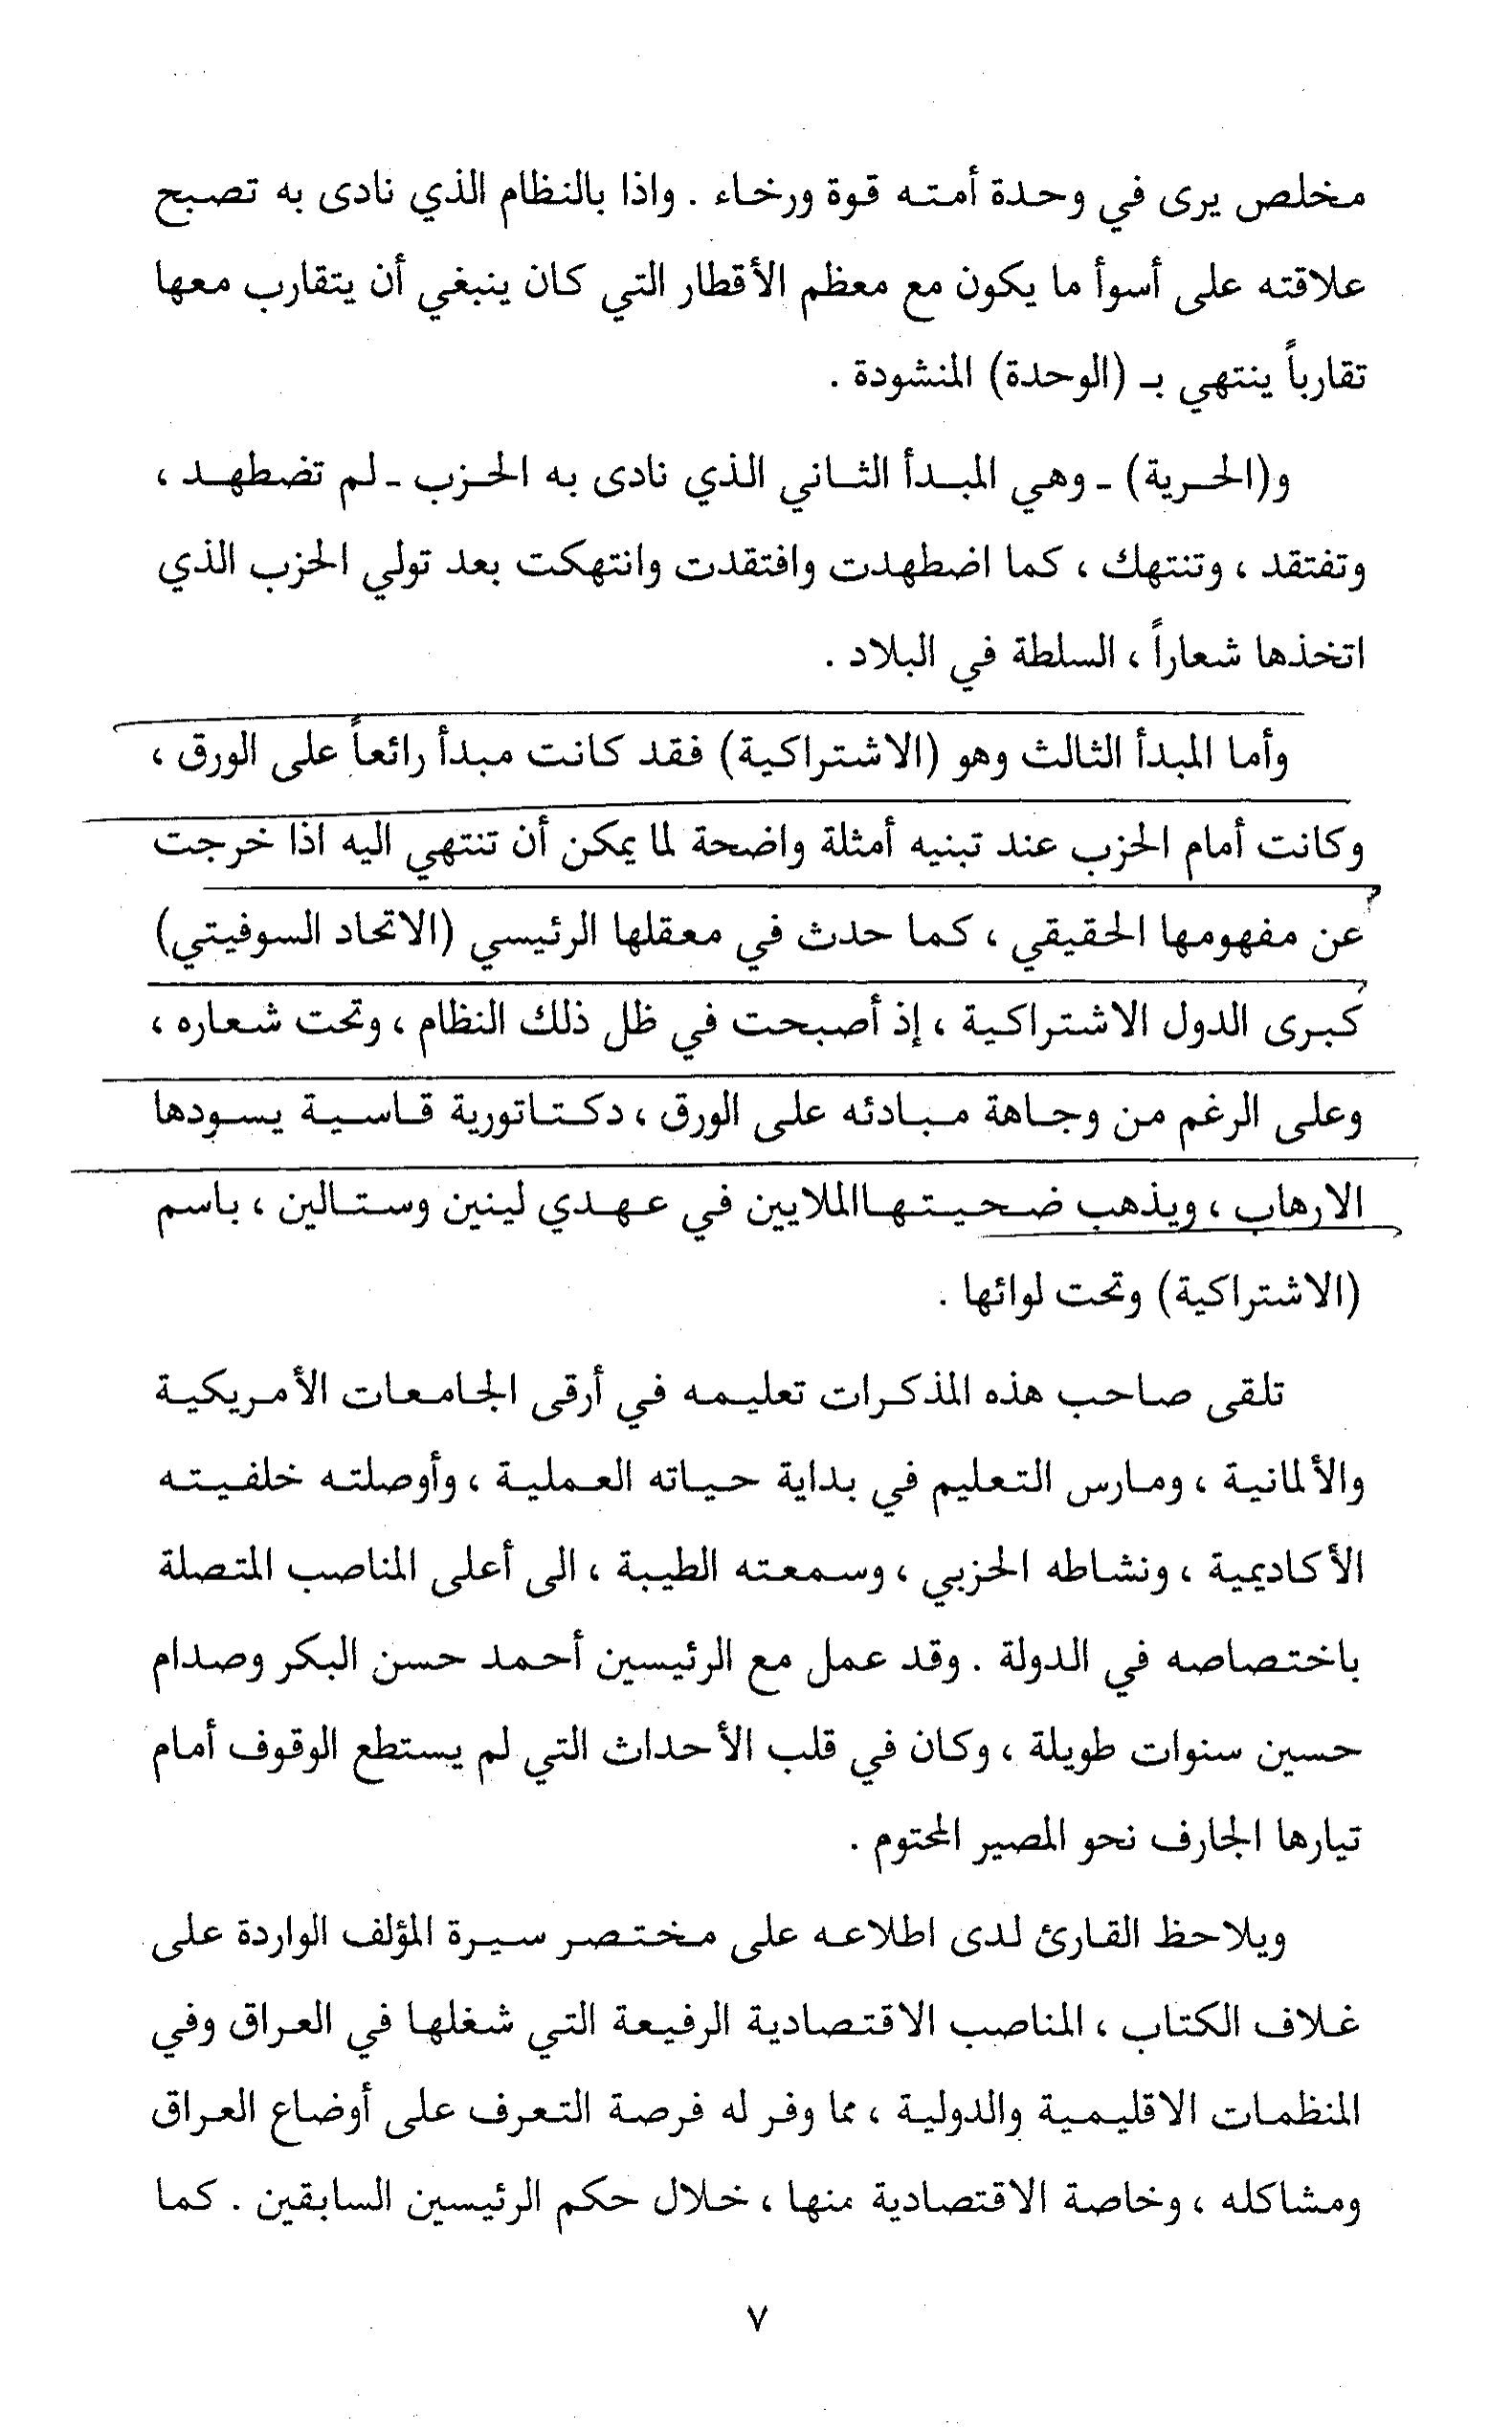 مخلص يرى في وحدة أمته قوة ورخاء . واذا بالنظام الذي نادى به تصبح
علاقته على أسوأ ما يكون مع معظم الأقطار التي كان ينبغي أن يتقارب معها
تقارباً ينتهي بـ (الوحدة) المنشودة .
و(الحرية) ـ وهي المبدأ الثاني الذي نادى به الحزب ـ لم تضطهد ،
وتفتقد ، وتنتهك ، كما اضطهدت وافتقدت وانتهكت بعد تولي الحزب الذي
اتخذها شعاراً ، السلطة في البلاد .
وأما المبدأ الثالث وهو (الاشتراكية) فقد كانت مبدأ رائعاً على الورق ،
وكانت أمام الحزب عند تبنيه أمثلة واضحة لما يمكن أن تنتهي اليه اذا خرجت
عن مفهومها الحقيقي ، كما حدث في معقلها الرئيسي (الاتحاد السوفيتي)
كبرى الدول الاشتراكية ، إذ أصبحت في ظل ذلك النظام ، وتحت شعاره ،
وعلى الرغم من وجاهة مبادئه على الورق ، دكتاتورية قاسية يسودها
الارهاب ، ويذهب ضحيتهاالملايين في عهدي لينين وستالين ، باسم
(الاشتراكية) وتحت لوائها .
تلقى صاحب هذه المذكرات تعليمه في أرقى الجامعات الأمريكية
والألمانية ، ومارس التعليم في بداية حياته العملية ، وأوصلته خلفيته
الأكاديمية ، ونشاطه الحزبي ، وسمعته الطيبة ، الى أعلى المناصب المتصلة
باختصاصه في الدولة . وقد عمل مع الرئيسين أحمد حسن البكر وصدام
حسين سنوات طويلة ، وكان في قلب الأحداث التي لم يستطع الوقوف أمام
تيارها الجارف نحو المصير المحتوم .
ويلاحظ القارئ لدى اطلاعه على مختصر سيرة المؤلف الواردة على
غلاف الكتاب ، المناصب الاقتصادية الرفيعة التي شغلها في العراق وفي
المنظمات الاقليمية والدولية ، مما وفر له فرصة التعرف على أوضاع العراق
ومشاكله ، وخاصة الاقتصادية منها ، خلال حكم الرئيسين السابقين . كما
٧